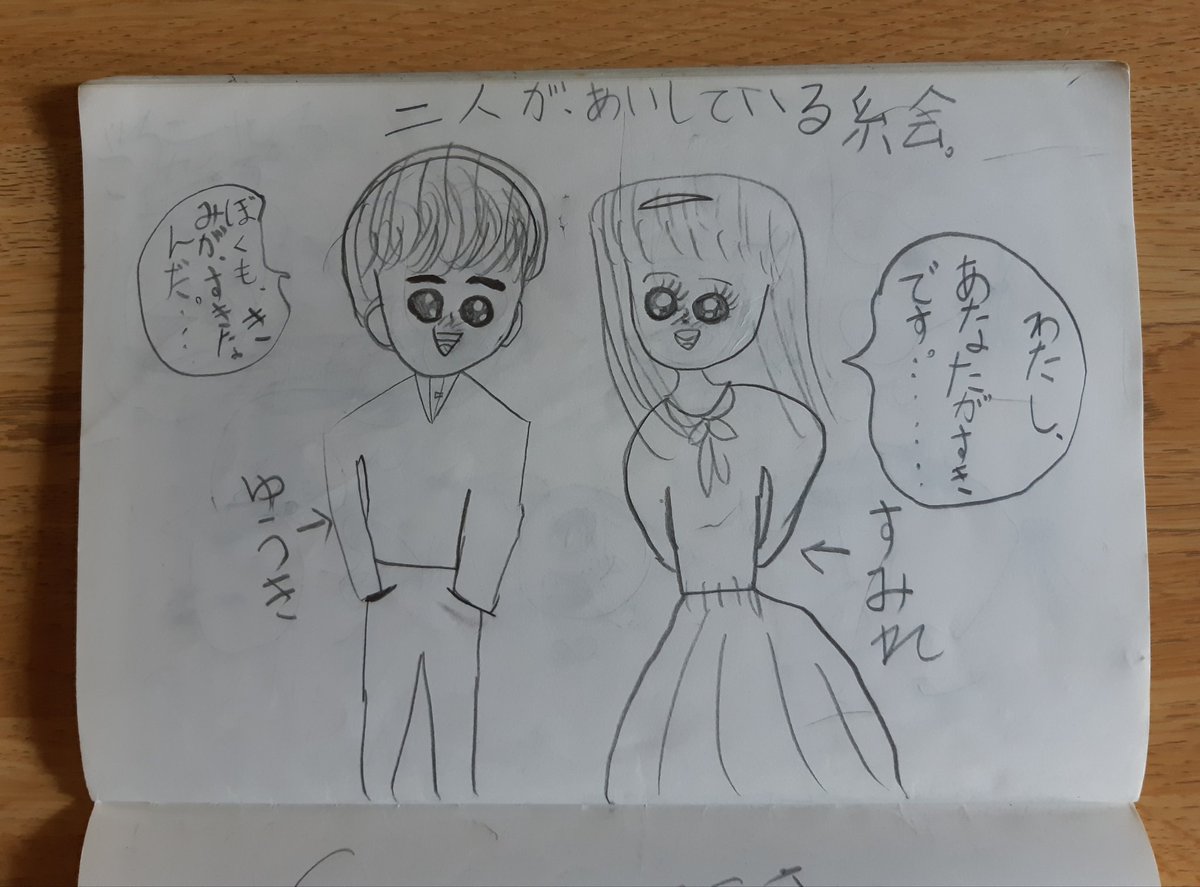 二人が、あいしている絵。
わたし、
あなたがすき
です。・・・・・
すみれ
ぼくも、き
みが、すきな
んだ。・・・
ゆうき